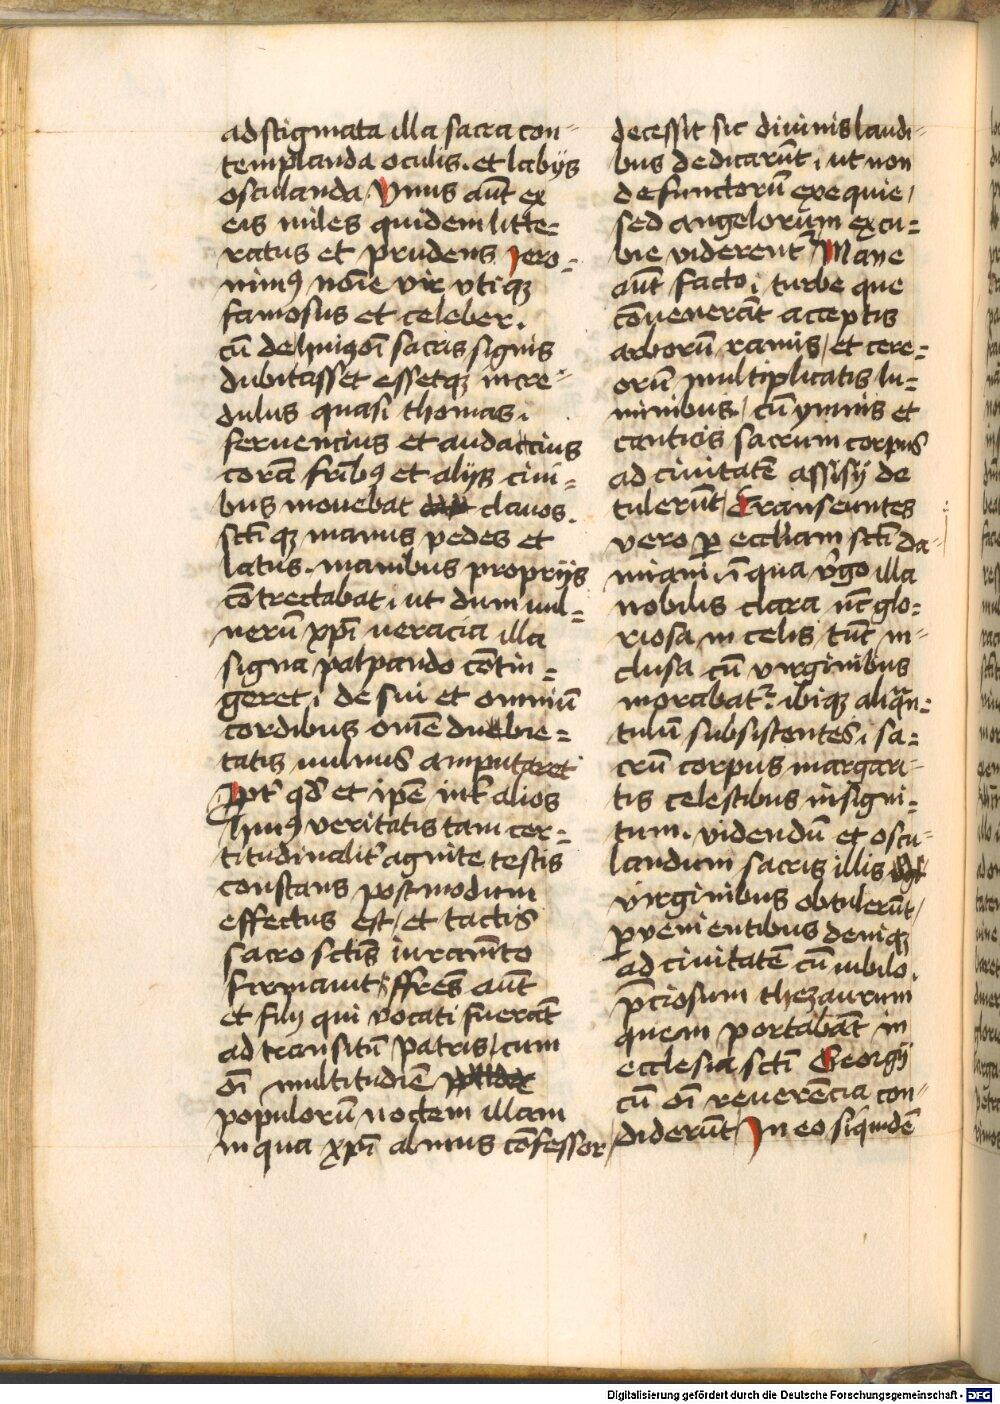 ad stigmata illa sacra con-
templanda oculis. et labijs
osculanda Vnus aūt ex
eis miles quidem litte=
ratus et prudens Jero=
nimꝰ noīe vir vtiqꝫ
famosus et celeber.
cū de huiꝰmōi sacris signis
dubitasset essetqꝫ incre-
dulus quasi thomas.
feruencius et audaccius
corā frībꝰ et alijs ciui=
bus mouebat clauos.
sctī qꝫ manus pedes et
latus. manibus proprijs
cōtrectabat, ut dum uul=
nerū xp̄i ueracia illa
signa palpando cōtin=
geret, de sui et omniū
cordibus omē dubie=
tatis uulnus amputaret
Ppt' qd' et ipē int' alios
huiꝰ veritatis tam cer=
titudinalit' agnite testis
constans postmodum
effectus est/ et tactis
sacro sctīs iuramēto
firmauit/ ffrēs aūt
et filij qui vocati fuerāt
ad transitū patris/ cum
oī multitudiē
populorū noctem illam
in qua xp̄i almus cōfessor
decessit sic diuinis laudi-
bus dedicarūt, ut non
defunctorū exequie/
sed angelorum excu=
bie viderent᷑ Mane
aūt facto, turbe que
cōuenerāt acceptis
arborū ramis/ et cere=
orū multiplicatis lu=
minibus. cū ymnis et
canticis sacrum corpus
ad ciuitatē assisij de
tulerūt/ Transeuntes
vero ꝑ ecclīam sctī da-
miani, ī qua v'go illa
nobilis clara nūc glo=
riosa in celis tūc in-
clusa cū virginibus
morabat᷑ ibiqꝫ aliqn=
tulū subsistentes, sa=
crū corpus margari-
tis celestibus insigni=
tum. videndū et oscu-
landum sacris illis
virginibus obtulerūt/
ꝑuenientibus deniqꝫ
ad ciuitatē cū iubilo.
p̄ciosum thezaurum
quem portabāt in
ecclesia sctī Georgij
cū oī reuerēcia con-
diderūt/ In eo siquidē
Digitalisierung gefördert durch die Deutsche Forschungsgemeinschaft - DFG